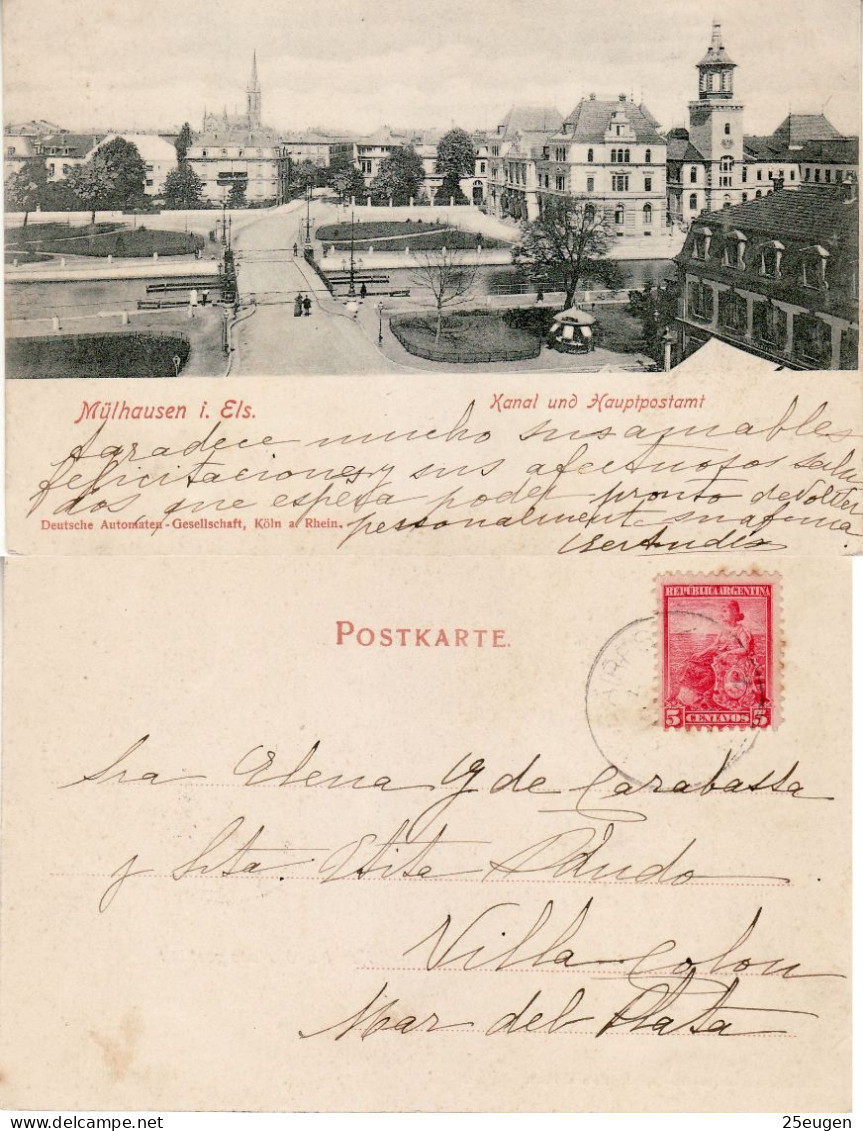 Mülhausen i. Els.
Kanal und Hauptpostamt
Agradece mucho sus amables
felicitaciones y sus afectuosos salu
dos, que espera poder pronto devolver
Deutsche Automaten-Gesellschaft, Köln a. Rhein.
personalmente su afma
POSTKARTE.
REPUBLICA ARGENTINA
5 CENTAVOS 5
Sra Elena G. de Carabassa
y Srta.
Villa Colon
Mar del Plata
DELCAMPE.NET
25eugen